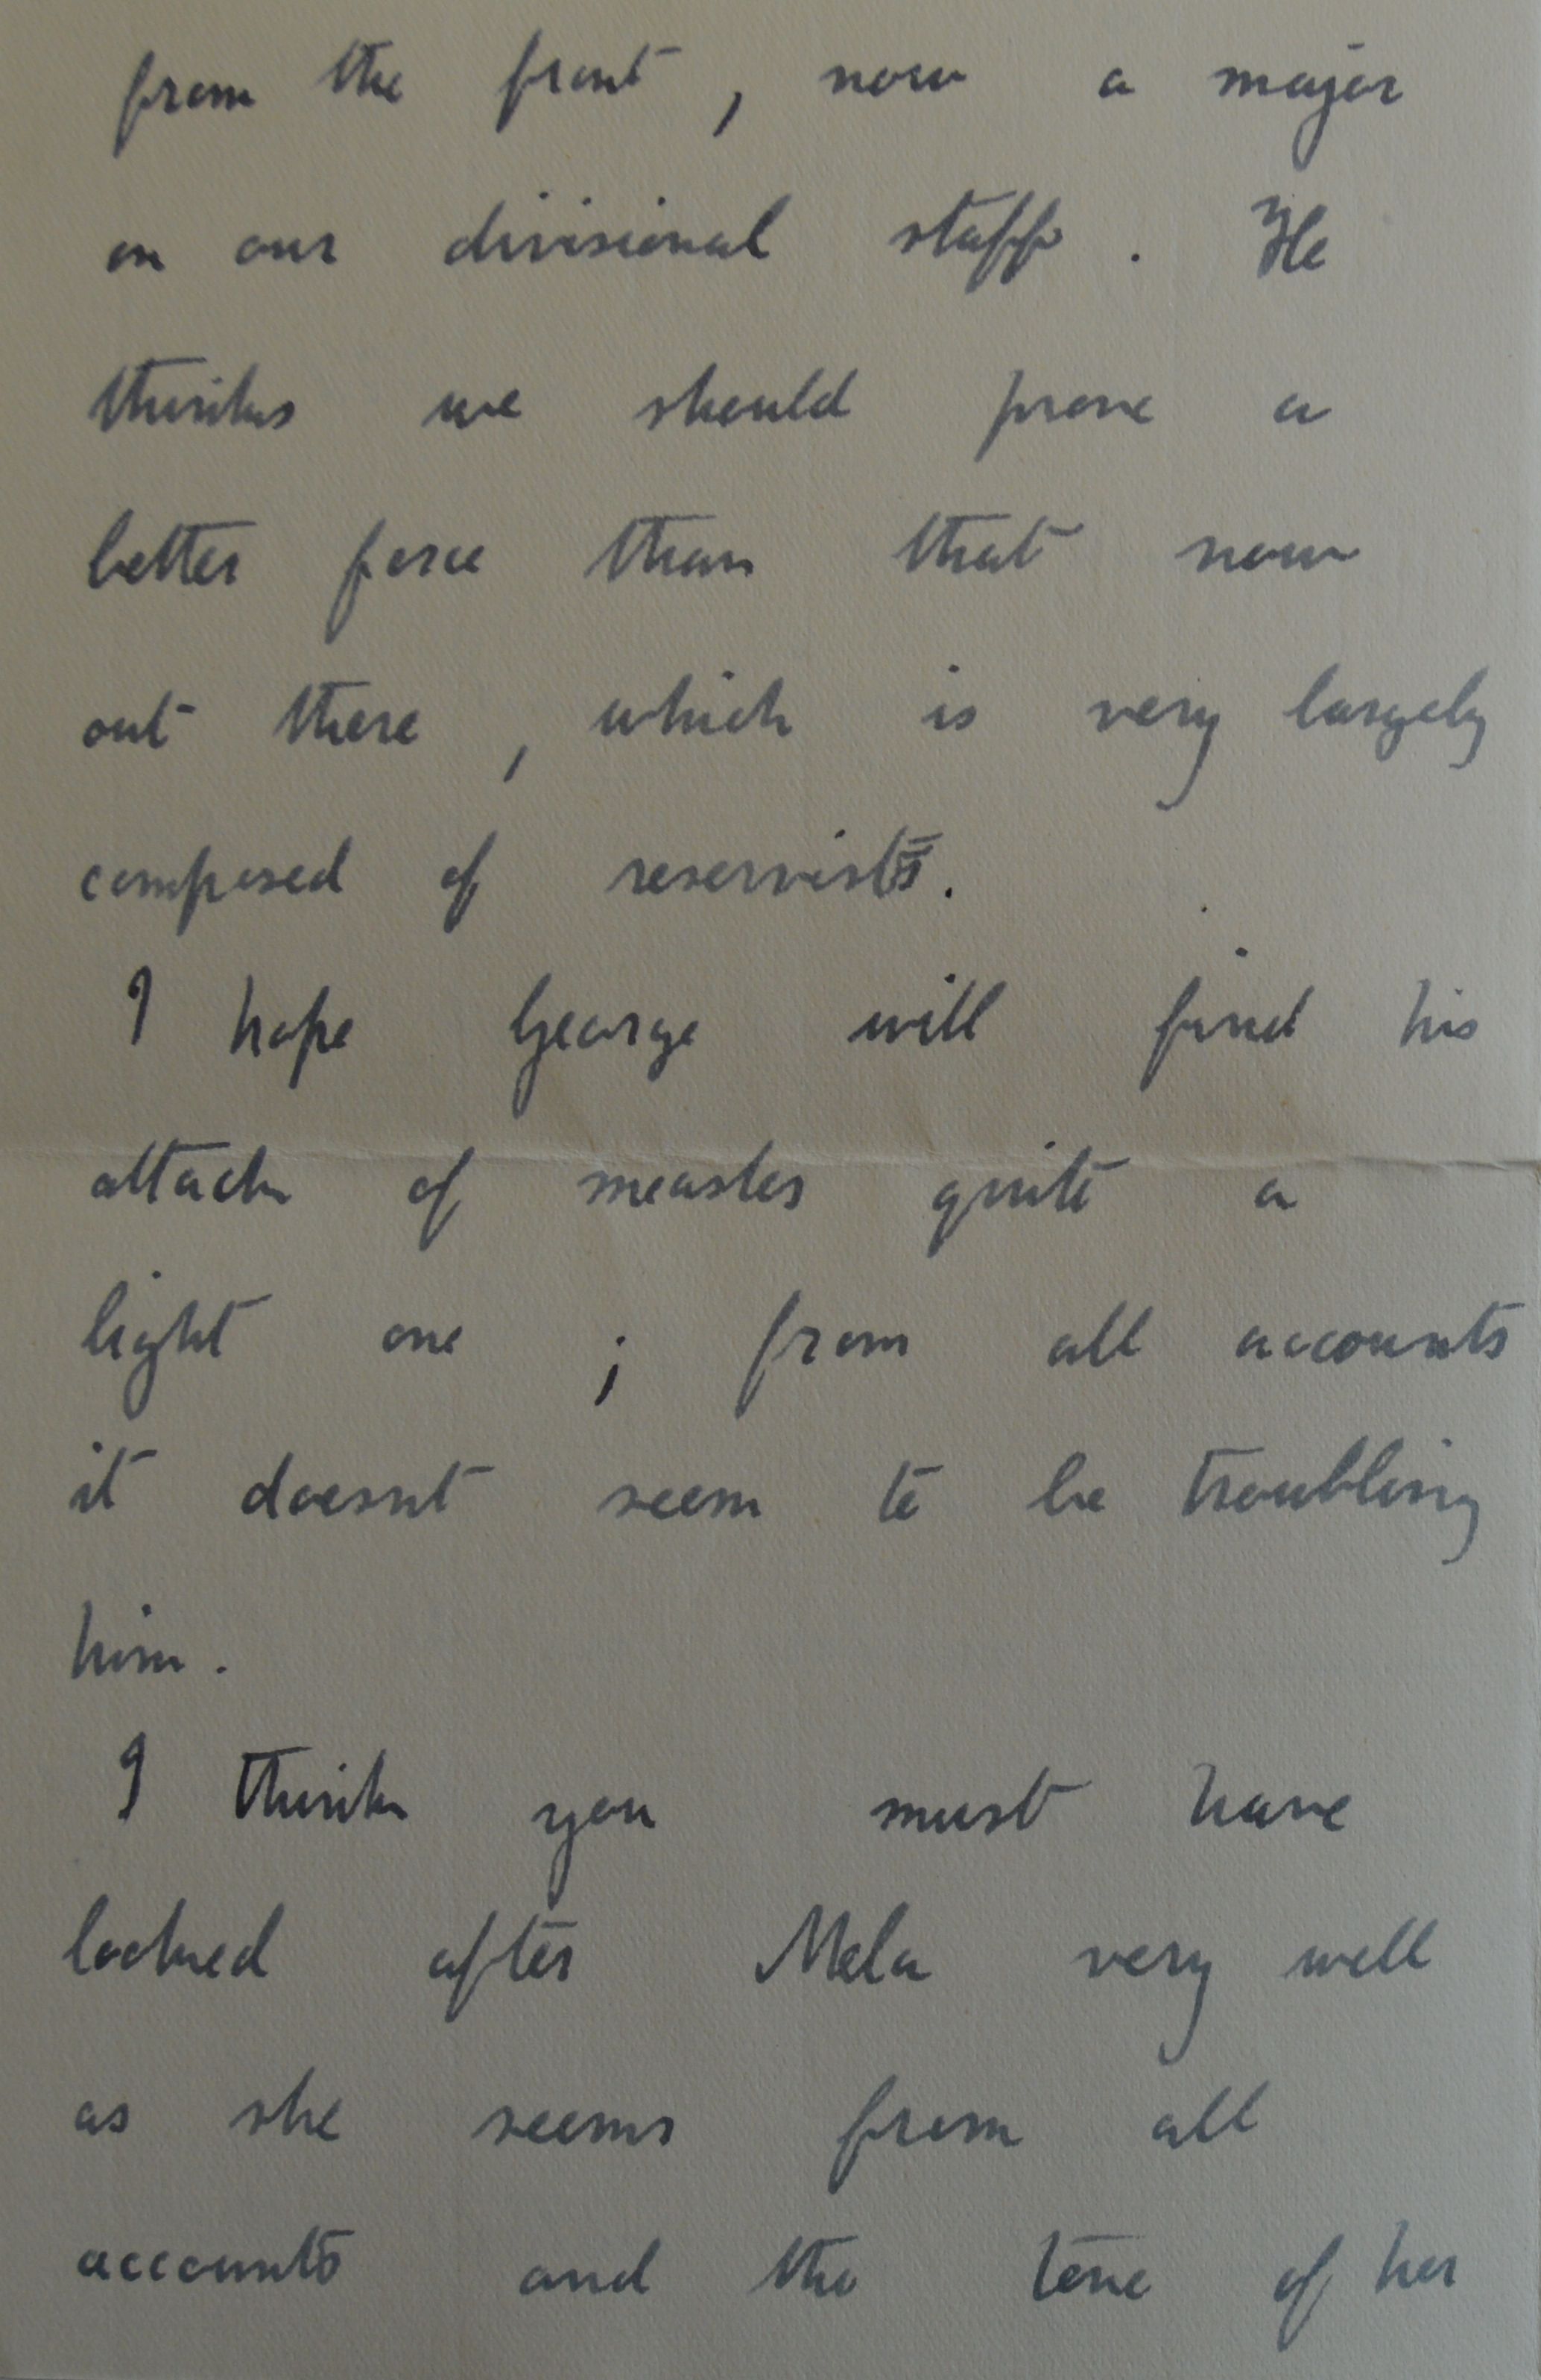 from the front, now a major
on our divisional staff. He
thinks we should prove a
better force than that now
out there, which is very largely
composed of reservists.
I hope George will find his
attack of measles quite a
light one; from all accounts
it doesnt seem to be troubling
him.
I think you must have
looked after Mela very well
as she seems from all
accounts and the tone of her